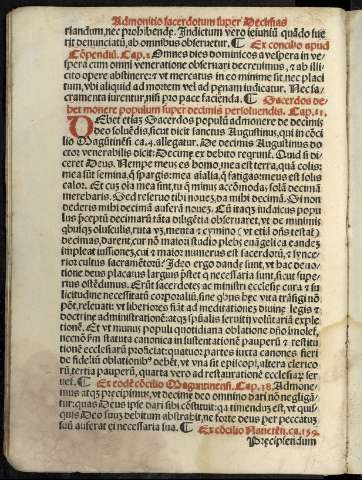 Admonitio sacerdotum super Decimas
riandum, nec prohibendę. Indictum vero ieiuniū quādo fue
rit denunciatū, ab omnibus obseruetur. ¶ Ex concilio apud
Cōpendiū. Cap. Omnes dies dominicos a vespera in ve-
spera cum omni veneratione obseruari decreuimus, & ab illi-
cito opere abstinere: & vt mercatus in eo minime sit, nec placi
tum, vbi aliquid ad mortem vel ad penam iudicatur. Nec sa-
cramenta iurentur, nisi pro pace facienda. ¶ Sacerdos de-
bet monere populum super decimis persoluendis. Cap. 11.
DEbet etiā Sacerdos populū admonere de decimis
deo soluēdis, sicut dicit sanctus Augustinus, qui in cōci
lio Magūtinēsi ca. 4. allegatur. De decimis Augustinus do
ctor venerabilis dicit: Decimę ex debito requirūt. Quid si di-
ceret Deus. Nempe meus es homo, mea est terra, quā colis:
mea sūt semina, q̄ spargis: mea aīalia, q̄ fatigas: meus est solis
calor. Et cum oīa mea sint, tu q̄ minus accōmodas, solā decimā
merebaris. Sed reseruo tibi nouē, da mihi decimā. Si non
dederis mihi decimā auferā nouē. Cū itaq̢ iudaicus popu
lus p̄ceptū decimarū tāta diligētia obseruaret, vt de minimis
quibusq̢ olusculis, ruta vȝ, menta & cymino (vt etiā dn̄s testat)
decimas, darent, cur nō maiori studio plebs euāgelica eandē
impleat iussionē, cui & maior numerus est sacerdotū, & syncę-
rior cultus sacramētorū? Ideo ergo dandę sunt, vt hac deuo-
tione deus placatus largius p̄stet q̄ necessaria sunt, sicut supe-
rius ostēdimus. Erūt sacerdotes ac ministri ecclesię cura & so
licitudine necessitatū corporaliū, sine q̄bus hęc vita trāsigi nō
pōt, releuati: vt liberiores fiāt ad meditationē diuinę legis &
doctrinę administrationē atq̢ spūalis seruitij volūtariā exple
tionē. Et vt munus populi quotidiana oblatione dn̄o īmolet,
necnō fm̄ statuta canonica in sustentationē pauperū & restitu
tionē ecclesiarū proficiat: quatuor partes iuxta canones fieri
de fideliū oblationibˀ debēt, vt vna sit epīcopi, altera clerico
rū, tertia pauperū, quarta vero ad restaurationē ecclesiarū ser
uet. ¶ Ex eodē cōcilio Maguntinensi. Cap. 38. Admone-
mus atq̢ pręcipimus, vt decime deo omnino dari nō negligā-
tur: quas Deus ipse dari sibi cōstituit: qa timendū est, vt quis-
quis Deo suū debitum abstrahit, ne forte deus per peccatum
suū auferat ei necessaria sua. ¶ Ex cōcilio Nanetēn. ca. 159.
Pręcipiendum